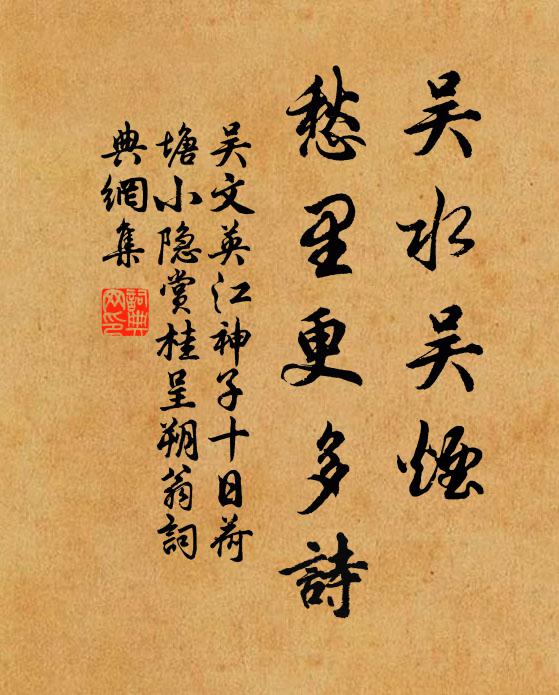 吴水吴煙
愁里更多詩
吴文英江神子十日荷
塘小隐赏桂呈朔翁詞
典網集
詞典网印